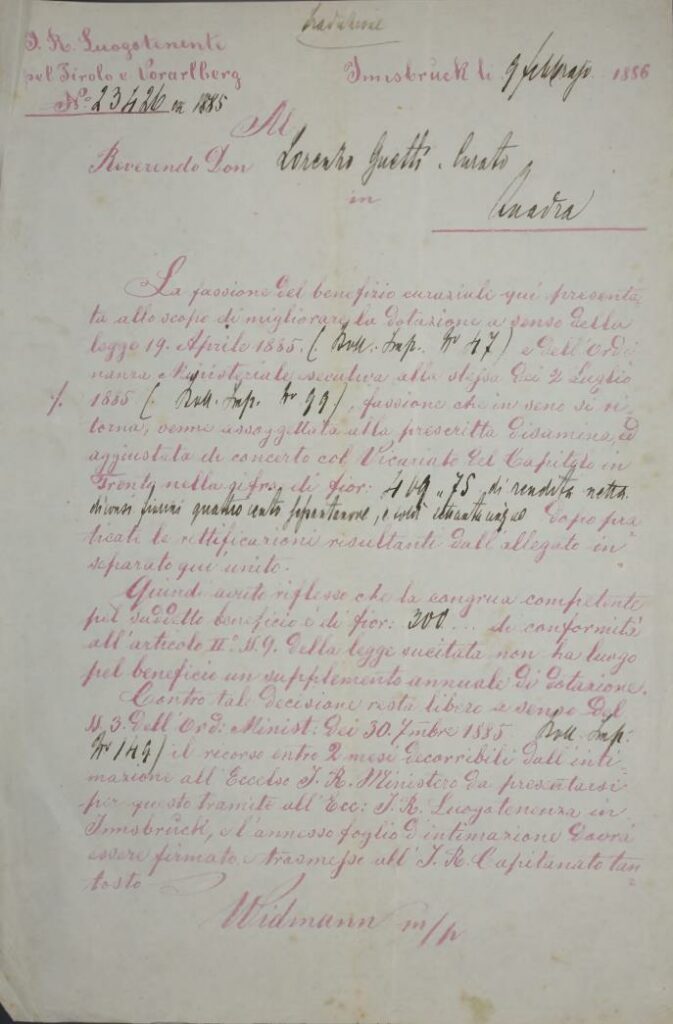 traduzione
I. R. Luogotenente
pel Tirolo e Vorarlberg
N.º 23426 ex 1885
Innsbruck li 9 febbrajo 1886
Al
Reverendo Don Lorenzo Guetti. Curato
in
Quadra
La fassione del benefizio curaziale quì presenta-
ta allo scopo di migliorare la dotazione a senso della
legge 19. Aprile 1885. (Boll. Imp. Nr 47) e dell'Ordi
nanza Ministeriale esecutiva alla stessa dei 2 Luglio
./. 1885 (Boll. Imp. Nr 99), fassione che in seno si ri-
torna, venne assoggettata alla prescritta disamina, ed
aggiustata di concerto col Vicariato del Capitolo in
Trento nella cifra di fior: 479 „ 75 di rendita netta
diconsi fiorini quattrocento settantanove, e soldi settantacinque dopo pra
ticate le rettificazioni risultanti dall'allegato in
separato quì unito.
Quindi avuto riflesso che la congrua competente
pel suddetto beneficio è di fior: 300... di conformità
all'articolo II.º §. 9. della legge sucitata non ha luogo
pel beneficio un supplemento annuale di dotazione.
Contro tale decisione resta libero a senso del
§. 3. dell'Ord: Minist: dei 30. 7mbre 1885 Boll. Imp:
Nr 149) il ricorso entro 2 mesi decorribili dall'inti-
mazione all'Eccelso I. R. Ministero da presentarsi
per questo tramite all'Ecc: I. R. Luogotenenza in
Innsbruck, e l'annesso foglio d'intimazione dovrà
essere firmato e trasmesso all'I. R. Capitanato tan-
tosto
Widmann m/p